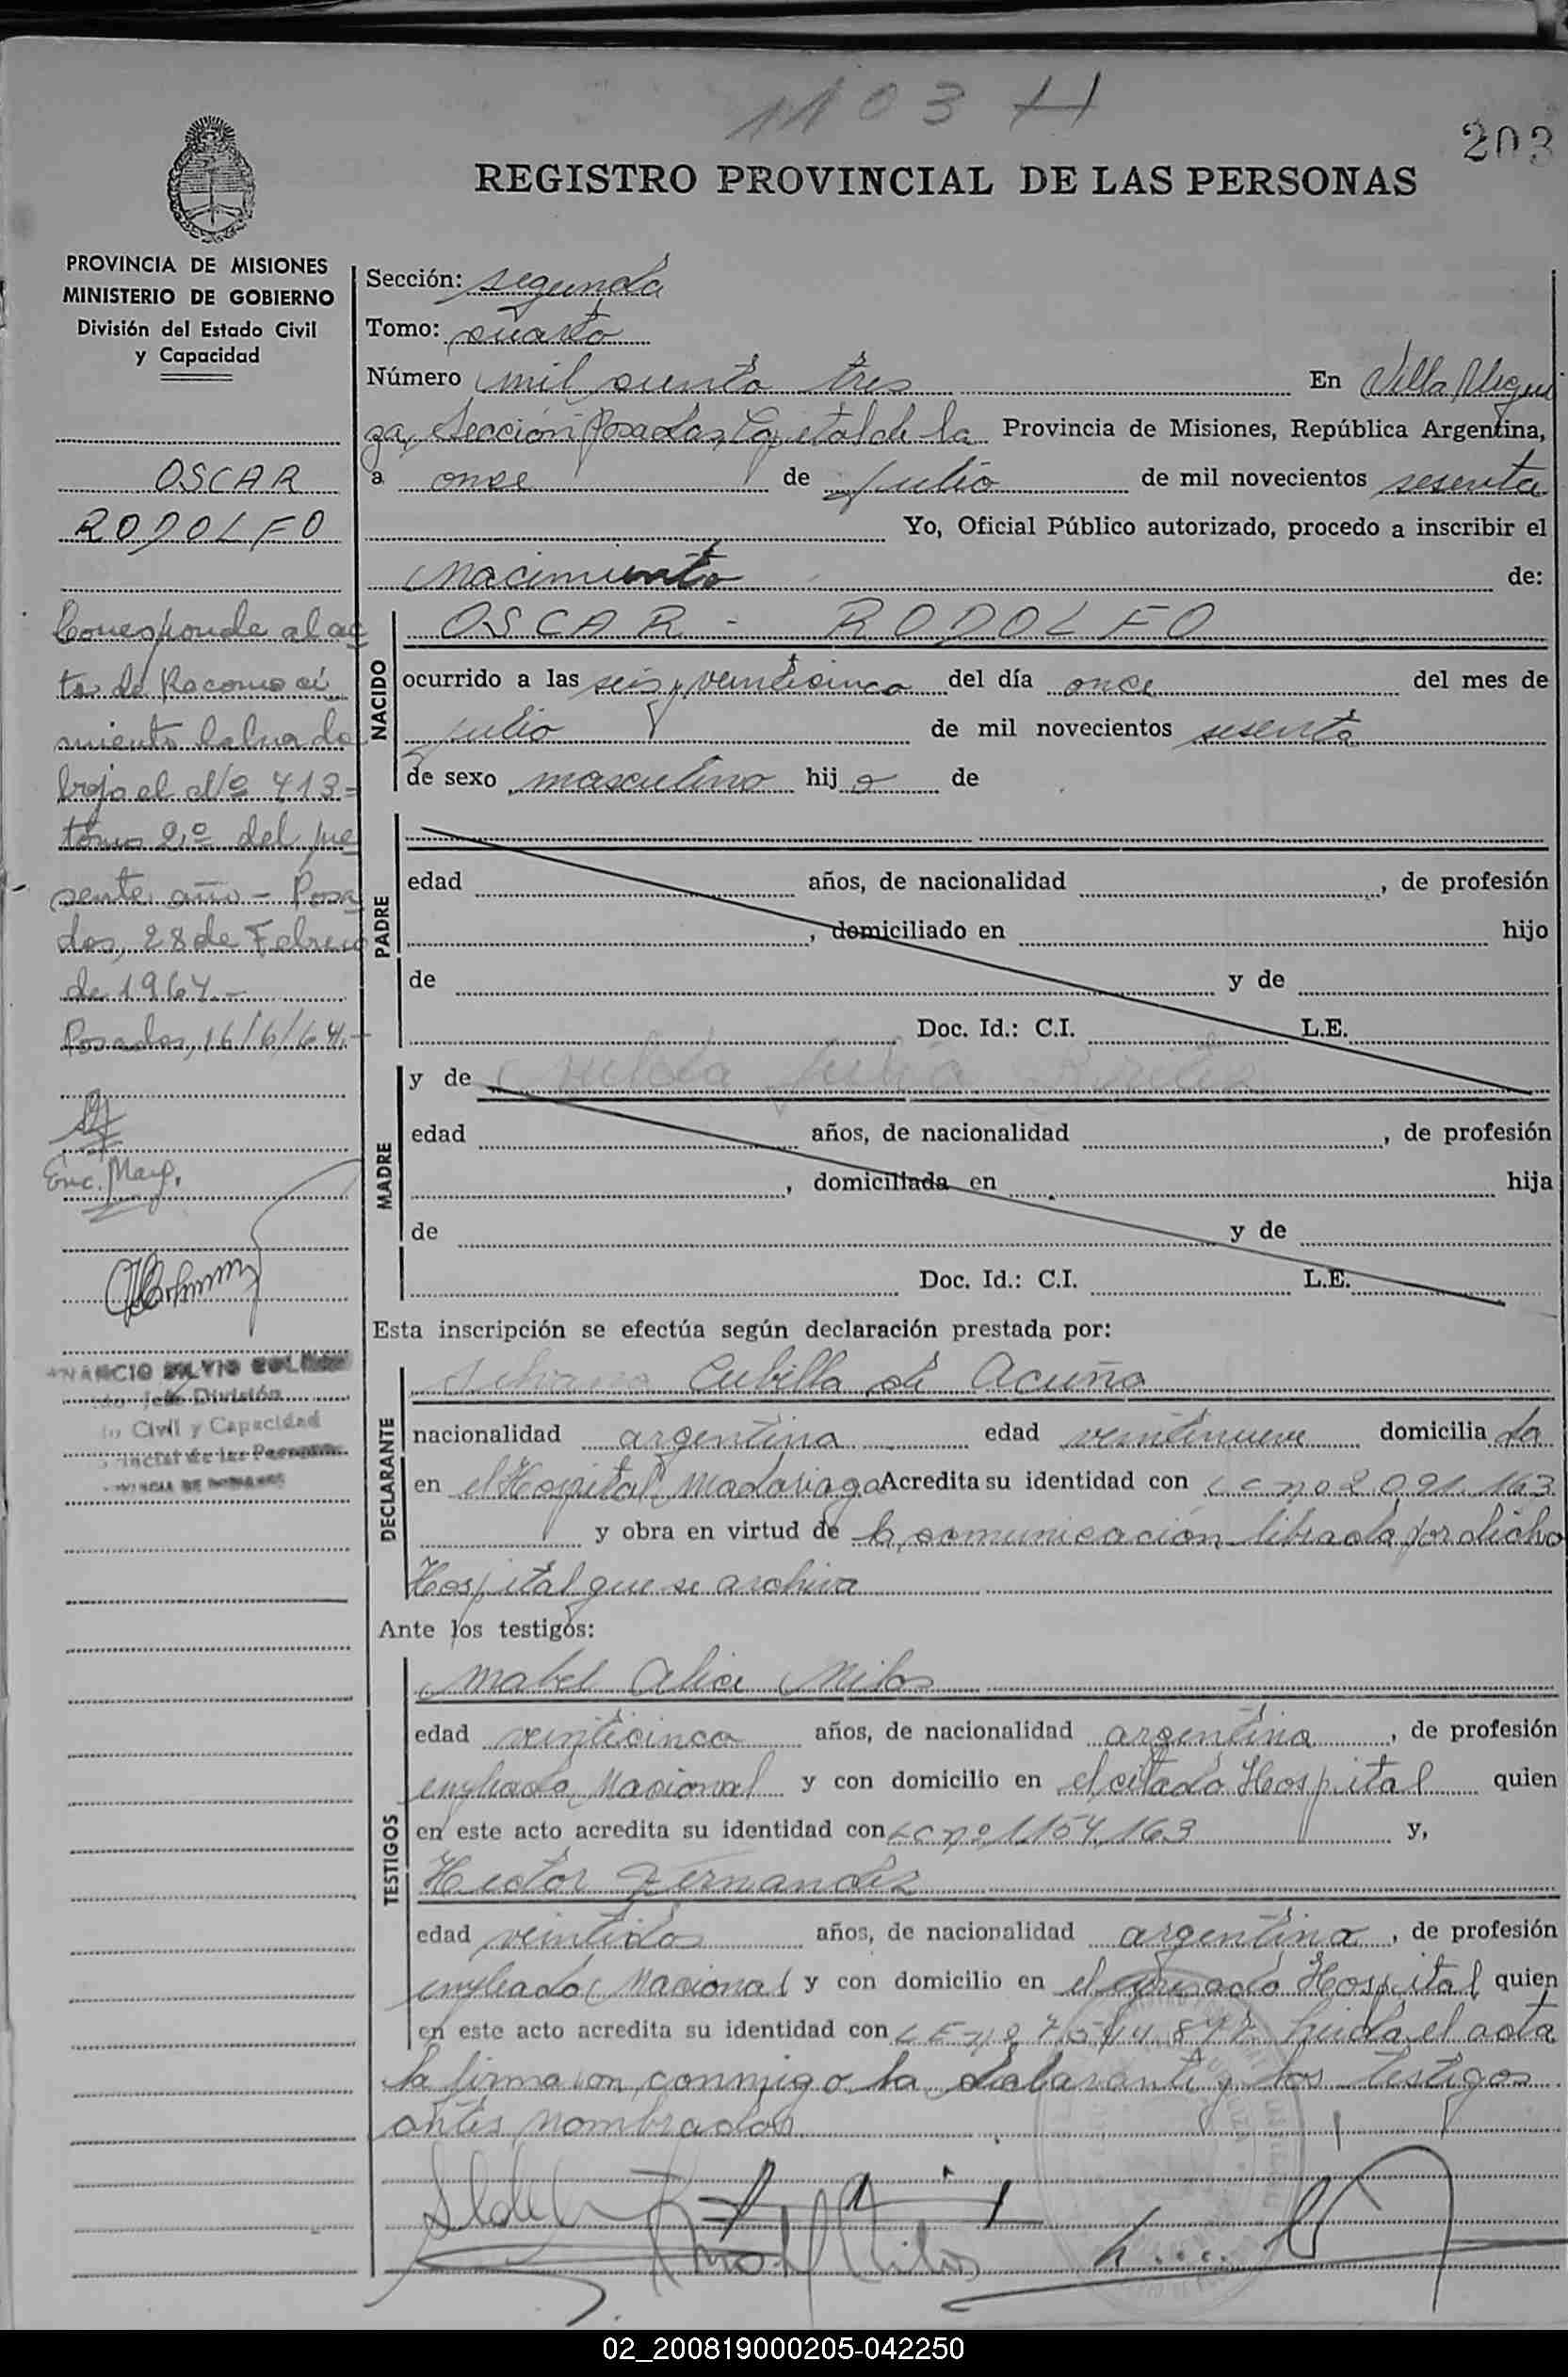 1103 H
203
REGISTRO PROVINCIAL DE LAS PERSONAS
PROVINCIA DE MISIONES
MINISTERIO DE GOBIERNO
División del Estado Civil
y Capacidad
OSCAR
RODOLFO
Corresponde al ac
ta de Reconoci
miento labrado
bajo el Nº 413-
tomo 2º del pre
sente año - Posa
das, 28 de Febrero
de 1964.-
Posadas, 16/6/64.-
Enc. Marg.
Jefe División
Civil y Capacidad
Sección: segunda
Tomo: cuarto
Número mil ciento tres En Villa Urqui
za, Sección Posadas, Capital de la Provincia de Misiones, República Argentina,
a once de julio de mil novecientos sesenta
Yo, Oficial Público autorizado, procedo a inscribir el
nacimiento de:
NACIDO
OSCAR - RODOLFO
ocurrido a las seis y veinticinco del día once del mes de
julio de mil novecientos sesenta
de sexo masculino hijo de
PADRE
edad años, de nacionalidad , de profesión
, domiciliado en hijo
de y de
Doc. Id.: C.I. L.E.
MADRE
y de Julia
edad años, de nacionalidad , de profesión
, domiciliada en hija
de y de
Doc. Id.: C.I. L.E.
Esta inscripción se efectúa según declaración prestada por:
DECLARANTE
Cubilla de Acuña
nacionalidad argentina edad veintinueve domiciliada
en el Hospital Madariaga Acredita su identidad con L C nº 2.091.163
y obra en virtud de la comunicación librada por dicho
Hospital que se archiva
Ante los testigos:
TESTIGOS
Mabel Alice Milos
edad veinticinco años, de nacionalidad argentina, de profesión
empleada Nacional y con domicilio en el citado Hospital quien
en este acto acredita su identidad con LC nº 1.154.163 y,
Hector Fernandez
edad veintidos años, de nacionalidad argentina, de profesión
empleado Nacional y con domicilio en el Hospital quien
en este acto acredita su identidad con L E nº leida el acta
la firma con conmigo la declarante y los testigos
antes nombrados
02_200819000205-042250